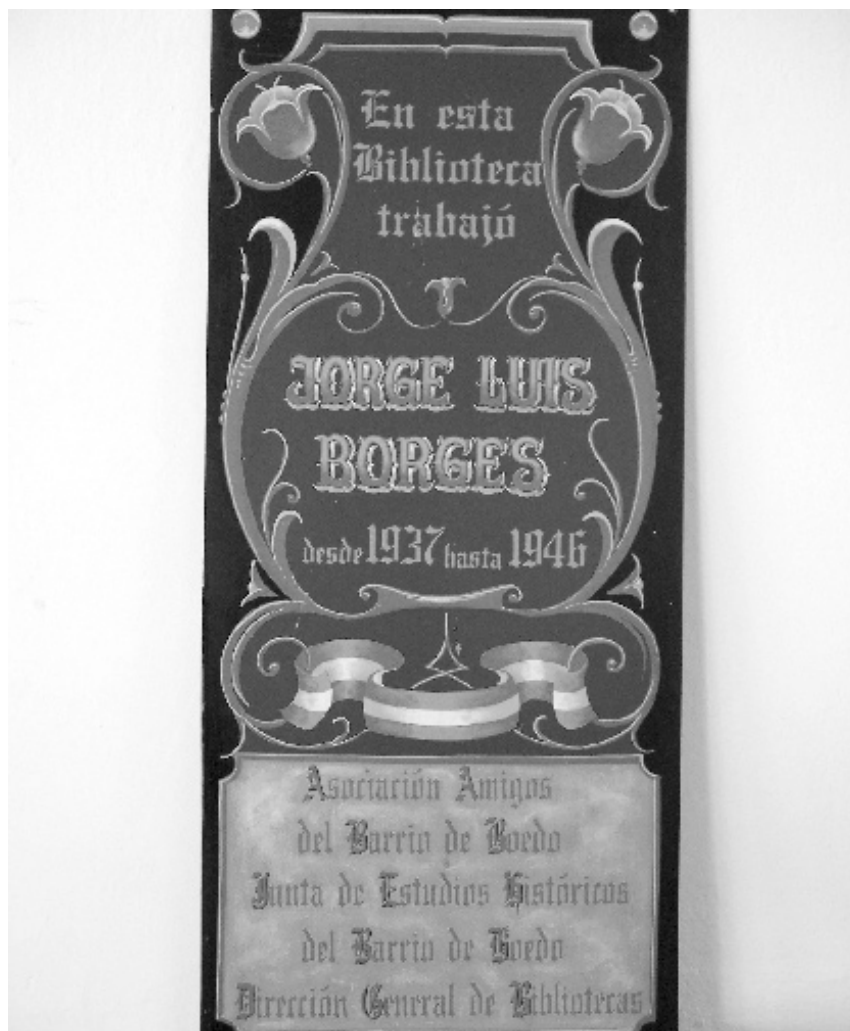 En esta
Biblioteca
trabajó
JORGE LUIS
BORGES
desde 1937 hasta 1946
Asociación Amigos
del Barrio de Boedo
Junta de Estudios Históricos
del Barrio de Boedo
Dirección General de Bibliotecas